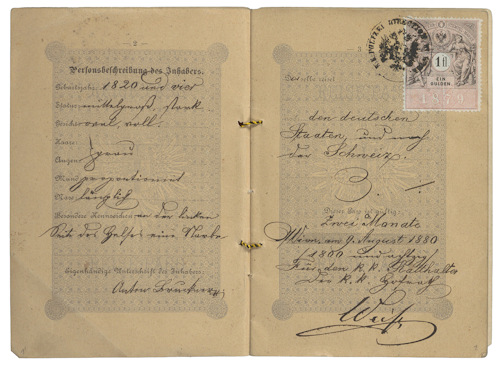 — 2 —
Personsbeschreibung des Inhabers.
Geburtsjahr, 1820 und vier
Statur, mittelgroß, stark
Gesicht oval, voll.
Haare
Augen grau
Mund proportionirt
Nase länglich
Besondere Kennzeichen an der linken
Seite des Halses eine Narbe
Eigenhändige Unterschrift des Inhabers:
Anton Bruckner
— 3
K.K. POLIZEI DIRECTION
1 fl
EIN
GULDEN
1879
den deutschen
Staaten, und nach
der Schweiz.
3.
Dieser Pass ist giltig:
Zwei Monate
Wien, am 9. August 1880
/1800 und achtzig
Für den k. k. Statthalter
Der k. k. Hofrath